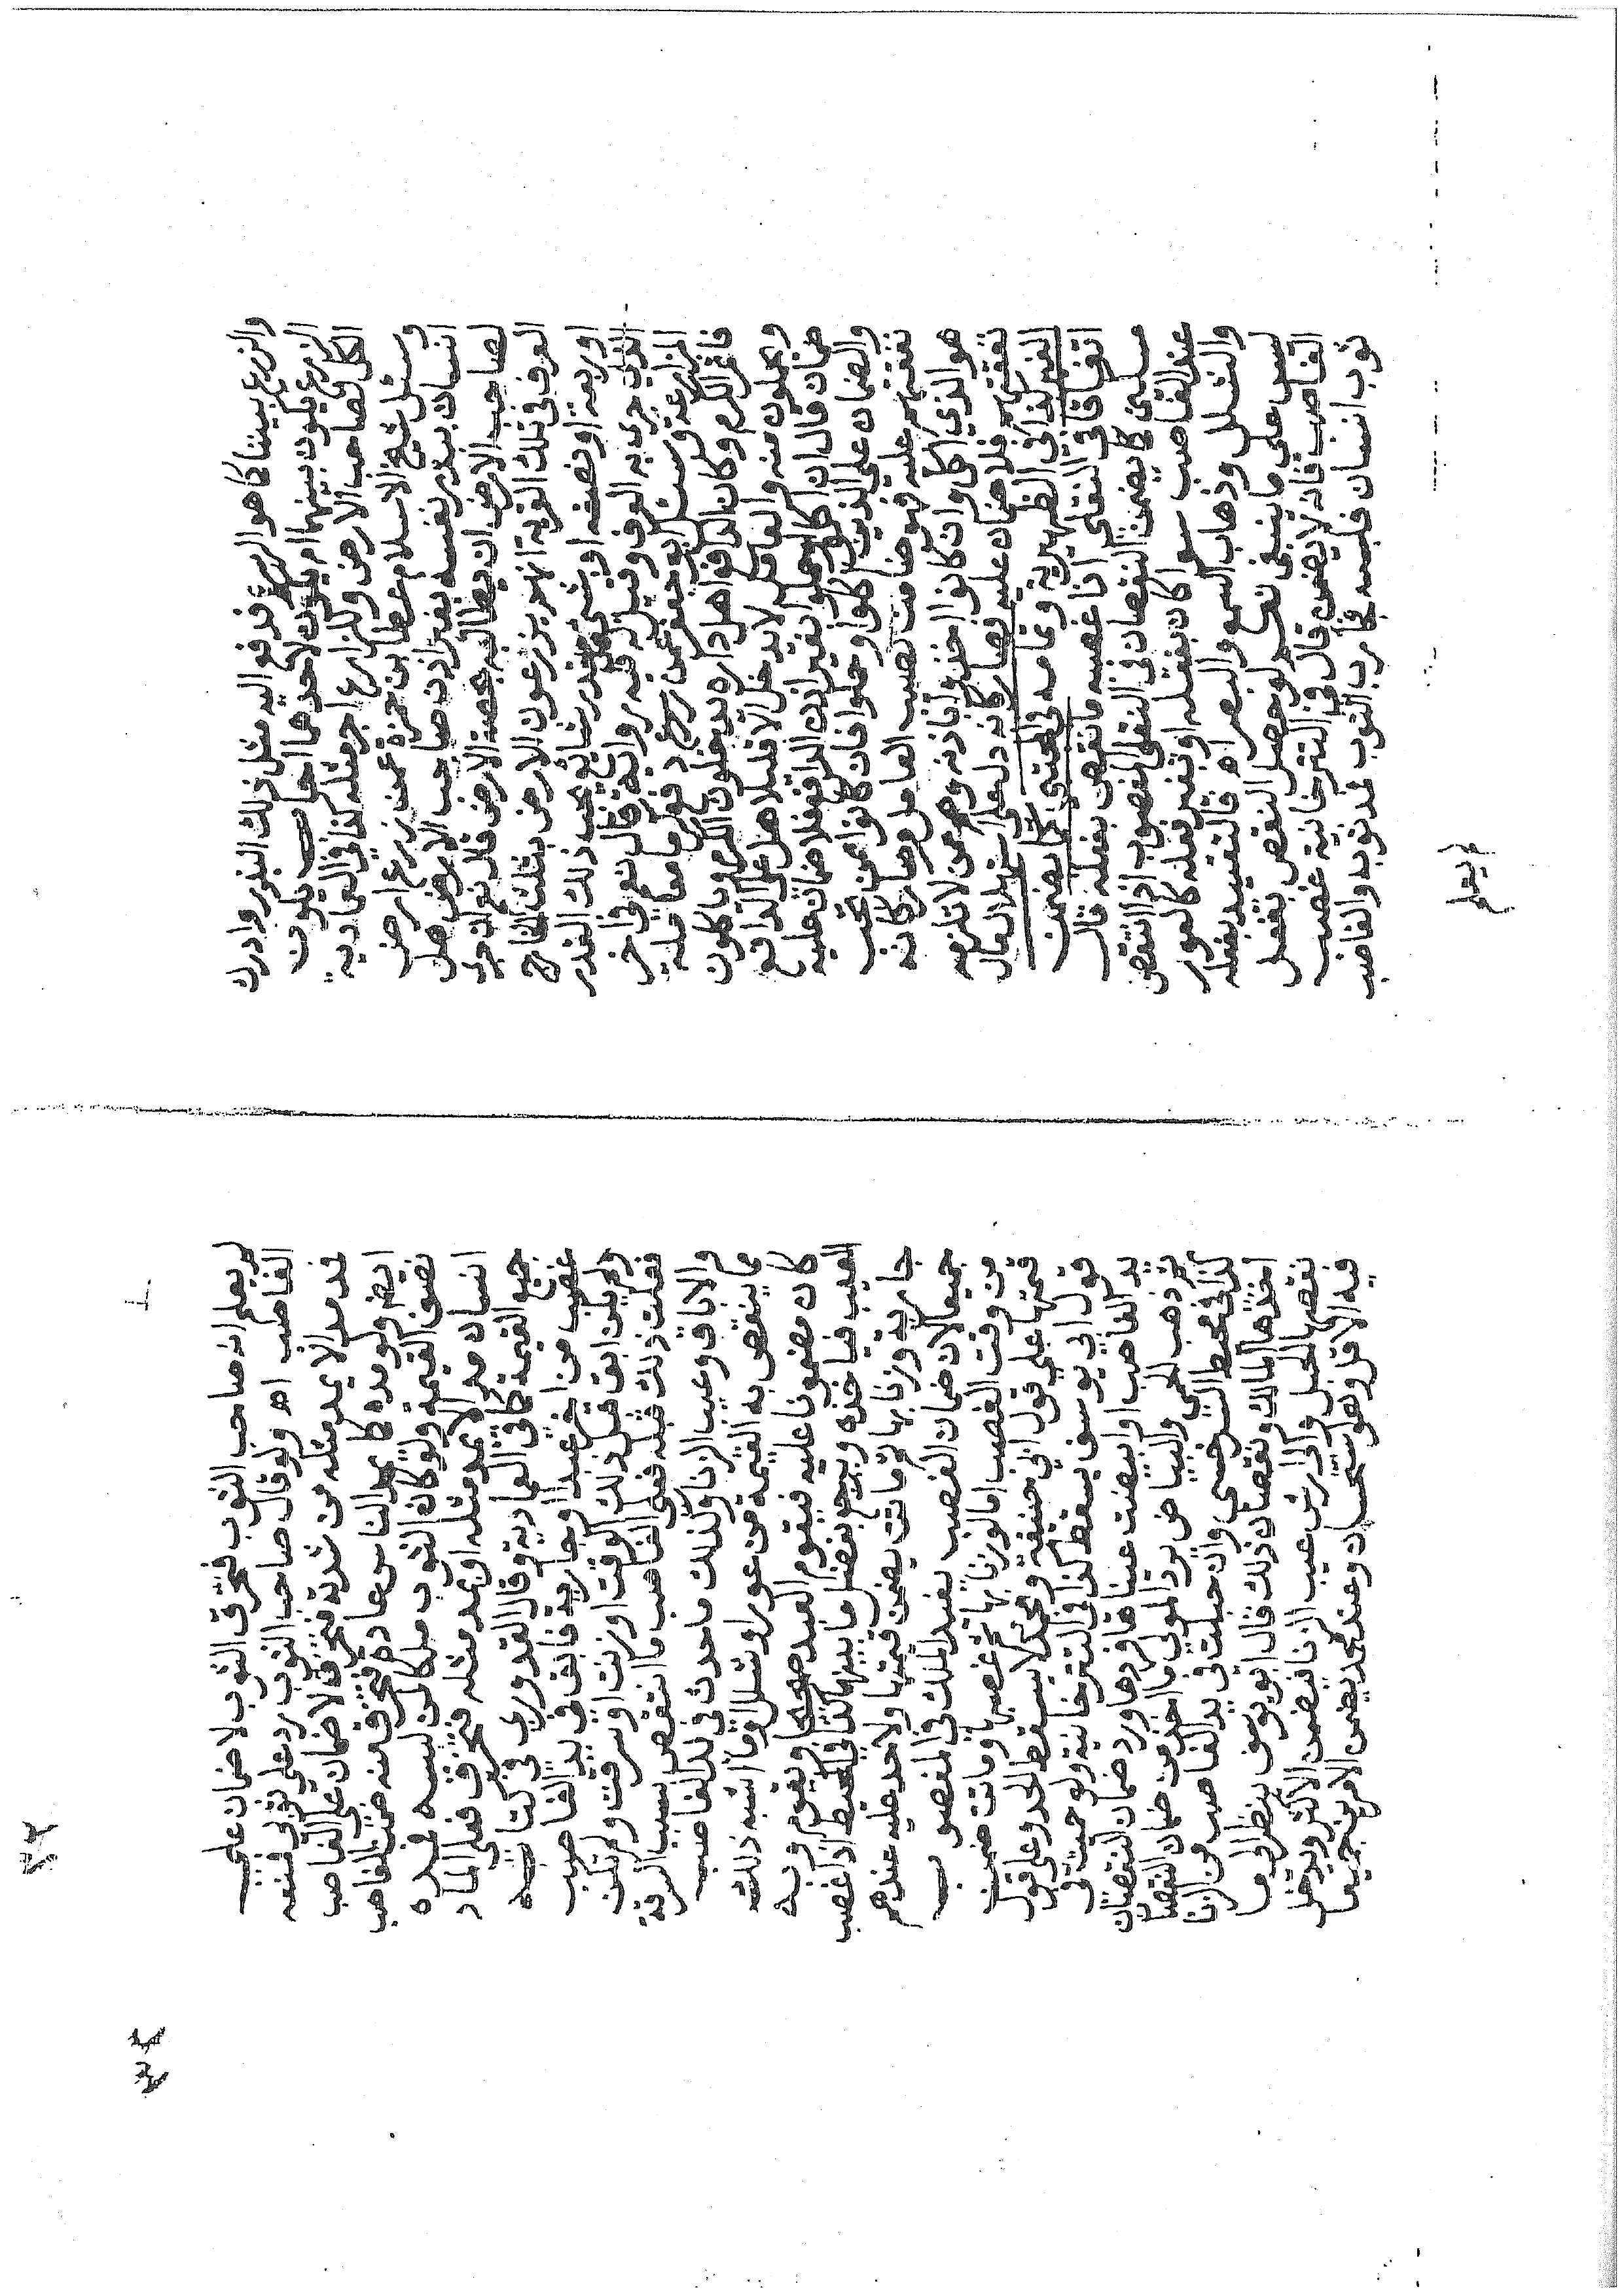 والزرع بيننا كما هو الرسم فدفع اليه مثل ذلك البذر وادرك
الزرع يكون بينهما ام يكون لاحدهما اجاب يكون
الكل لصاحب الارض وللزارع اجر مثله كذا في العمادية
وسئل شيخ الاسلام عطا بن حمزة عمن زرع ارض
انسان ببذر نفسه بغير اذن صاحب الارض هل
لصاحب الارض ان يطالبه بحصة الارض قال نعم ان جرى
العرف في تلك القرية انهم يزرعون الارض بثلث الخارج
او ربعه او نصفه او بشيء مقدر شايع يجب ذلك القدر
الذي جرى به العرف وقيل له فيه رواية قال نعم في اخر
المزارعة وسئل ابو جعفر عمن دفع كرما معاملة
فاثمر الكرم وكان الدافع اهل داره يدخلون الكرم وياكلون
ويحملون منه والعامل لا يدخل الا قليلا هل على الدافع
ضمان قال ان اكلوا وحملوا بغير اذن الدافع فلا ضمان عليه
والضمان على الذين اكلوا وحملوا فان كانوا ممن تجب
نفقتهم عليه فهو ضامن نصيب العامل وصار كانه
هو الذي اكل وان كانوا اخذوا باذنه وهم ممن لا تلزمه
نفقتهم فلا ضمان عليه فصار كانه دل على استهلاك مال
الغير كذا في الظهيرية وتمامه في المجتبى ثم يضمن
اتفاقا في النقلى اذا غصبه ما نقص بفعله قال
مسلتى كما يضمن النقصان في النقلى المغصوب اذا انتقص
عند الغاصب سوا كان بفعله او بغير فعله كالعور
والشلل وذهاب السمع والبصر اه فالتقييد بفعله
ليس على ما ينبغي نعم لو حصل النقص بفعل
الغاصب فانه لا يضمن قال في التترخانية غصب
ثوب انسان فلبسه فجا رب الثوب فمد ثوبه والغاصب
لم يعلم
لم يعلم انه صاحب الثوب فتخرق الثوب لا ضمان على
الغاصب اه ولو قال صاحب الثوب رد على ثوبي فمنعه
فمد مدا لا يمد مثله من شدة فتخرق لا ضمان على الغاصب
ايضا ولو مده كما يمد الناس عادة فتخرق فانه ضمن الغاصب
نصف القيمة ولو كان الثوب ملكا لمن لبسه فمده
انسان مدا لا يمد مثله او يمد مثله فتخرق فعلى الماد
جميع القيمة كما في العمادية وقال القدوري في كتابه
غصب من اخر عبدا او جارية فابق في يد الغاصب
ولم يكن ابق قبل ذلك الوقت او زنت او سرقت ولم تكن
فعلت ذلك قبله فعلى الغاصب ما انتقص بسبب السرقة
والاباق وعيب الزنا وكذلك ما حدث في يد الغاصب
مما ينقص به القيمة من عور او شلل او ما اشبه ذلك
كان مضمونا عليه فيقوم العبد صحيحا ويقوم وبه
العيب فياخذه ويرجع بفضل ما بينهما كذا في المحيط اذا غصب
جارية وزنا بها ثم ماتت يضمن قيمتها ولا حد عليه عندهم
جميعا لان ضمان الغصب يفيد الملك في المغصوب
من وقت الغصب اما لو زنا بها ثم غصبها وماتت ضمن
قيمتها على قول ابي حنيفة ومحمد لا يسقط الحد وعلى قول
قول ابي يوسف يسقط كذا في التترخانية ولو حمت في
يد الغاصب او ابيضت عيناها فردها ورد ضمان النقصان
ثم ذهب الحمى والبياض يرد المولى ما اخذ من ضمان النقصان
كذا في محيط السرخسي وان حبلت في يد الغاصب من الزنا
اخذها المالك ونقصان ذلك قال ابو يوسف ينظر الى ما
نقصها الحبل والى ارش عيب الزنا فيضمن الاكثر ويدخل
فيه الاقل وهو استحسان وعند محمد يضمن الامرين جميعا